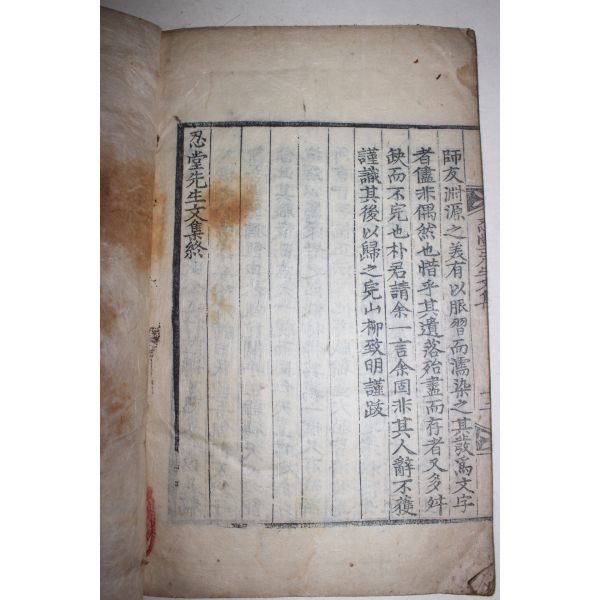 師友淵源之義有以脈習而濡染之其發爲文字
者儘非偶然也惜乎其遺落殆盡而存者又多舛
缺而不完也朴君請余一言余固非其人辭不獲
謹識其後以歸之完山柳致明謹跋
忍堂先生文集終